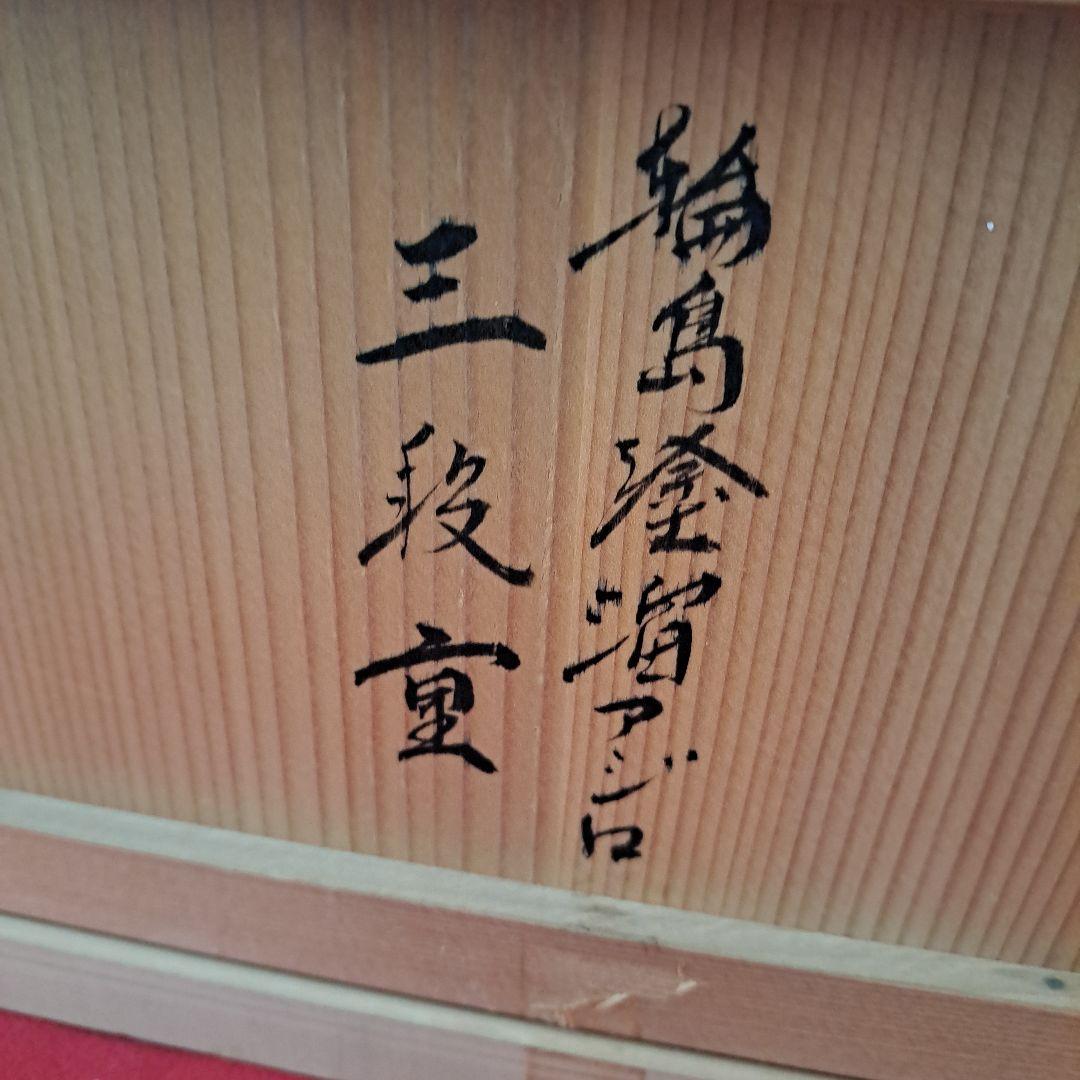 輪島塗溜アジロ
三段重